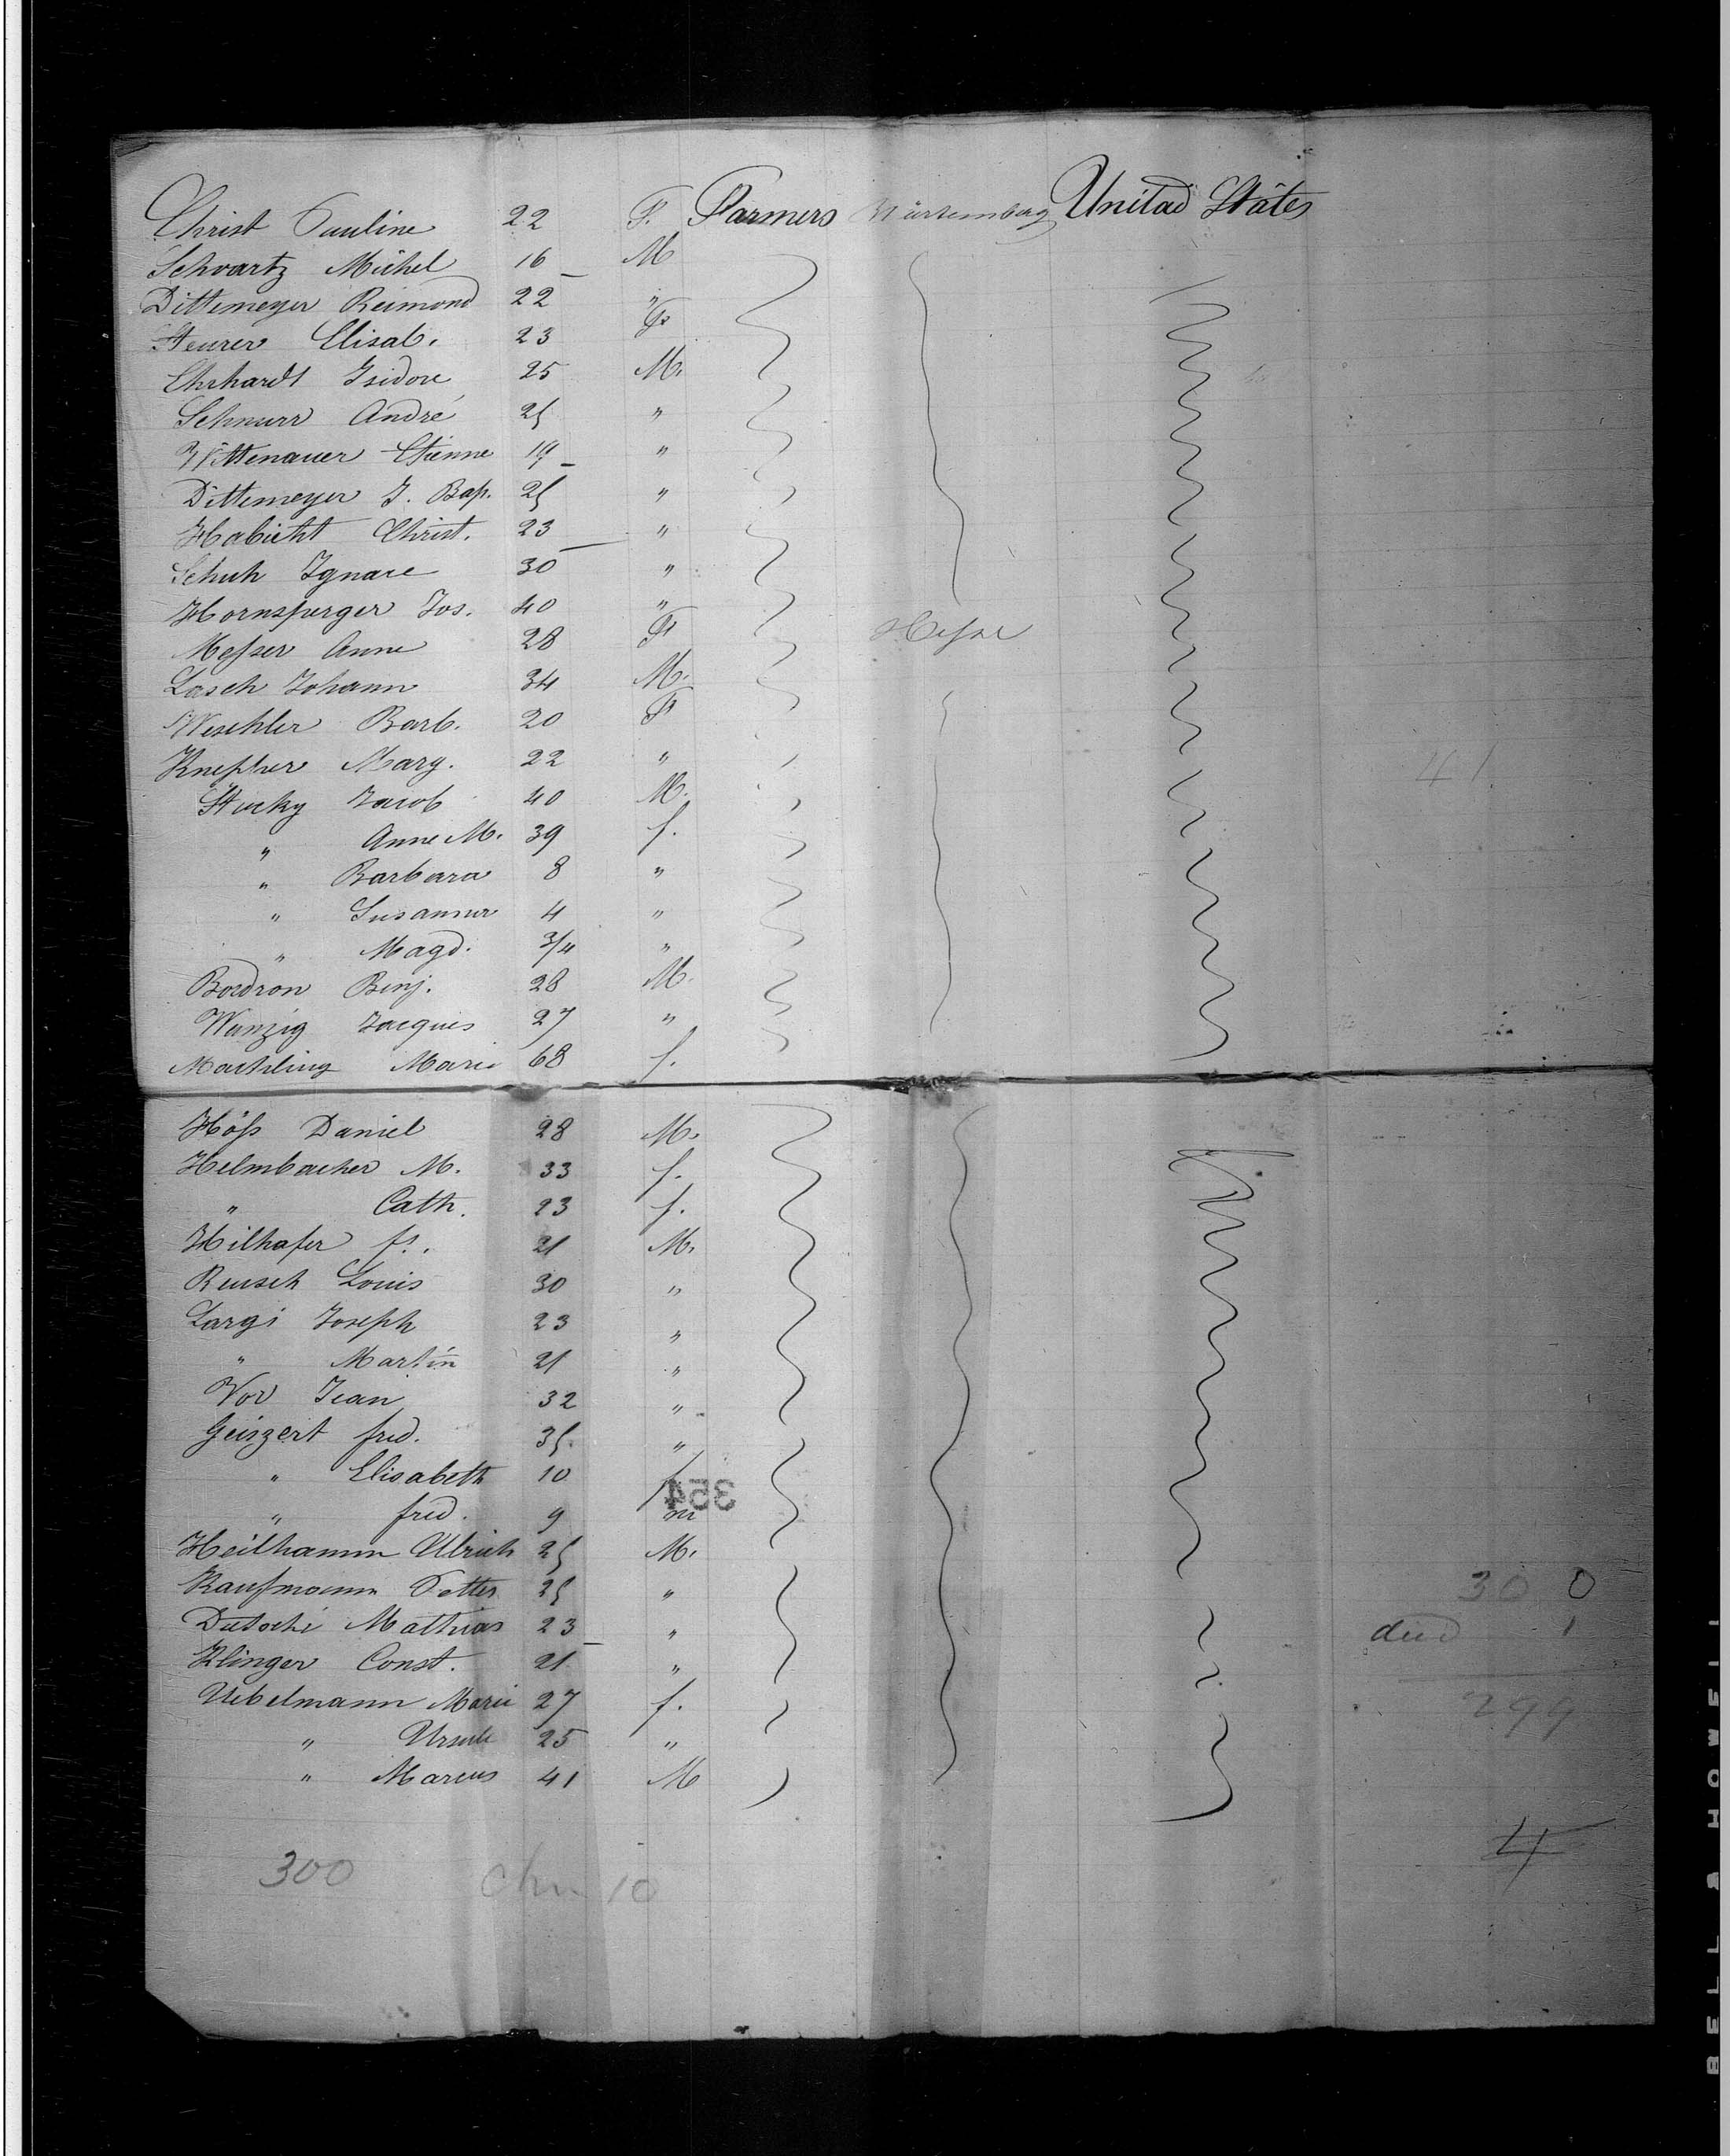 Christ Pauline 22 F. Farmers Würtemberg Unitad States
Schvartz Michel 16 M
Dittemeyer Reimond 22 "
Steurer Elisab. 23 F
Ehrhardt Isidore 25 M.
Schnurr André 25 "
Wittenauer Etienne 19 "
Dittemeyer J. Bap. 25 "
Habicht Christ. 23 "
Schuh Ignace 30 "
Hornsperger Jos. 40 "
Messer Anne 28 F Hesse
Lasch Johann 34 M.
Weschler Barb. 20 F
Knepher Marg. 22 " 41
Stucky Jacob 40 M.
" Anne M. 39 f.
" Barbara 8 "
" Susanna 4 "
" Magd. 3/4 "
Bordron Benj. 28 M.
Wanzig Jacques 27 "
Maechling Marie 68 f.
Höss Daniel 28 M.
Helmbacher M. 33 f.
" Cath. 23 f.
Hilhafer fr. 21 M.
Reusch Louis 30 "
Largi Joseph 23 "
" Martin 21 "
Vor Jean 32 "
Geiszert fred. 35 "
" Elisabeth 10 f.
354
" fred. 9 m
Heilhamm Ulrich 25 M.
Kaufmann Petter 25 " 300
Mathias 23 " died 1
Klinger Const. 21 "
Uibelmann Marie 27 f. 299
" Ursule 25 "
" Marcus 41 M
4
300 chn 10
BELL & HOWELL